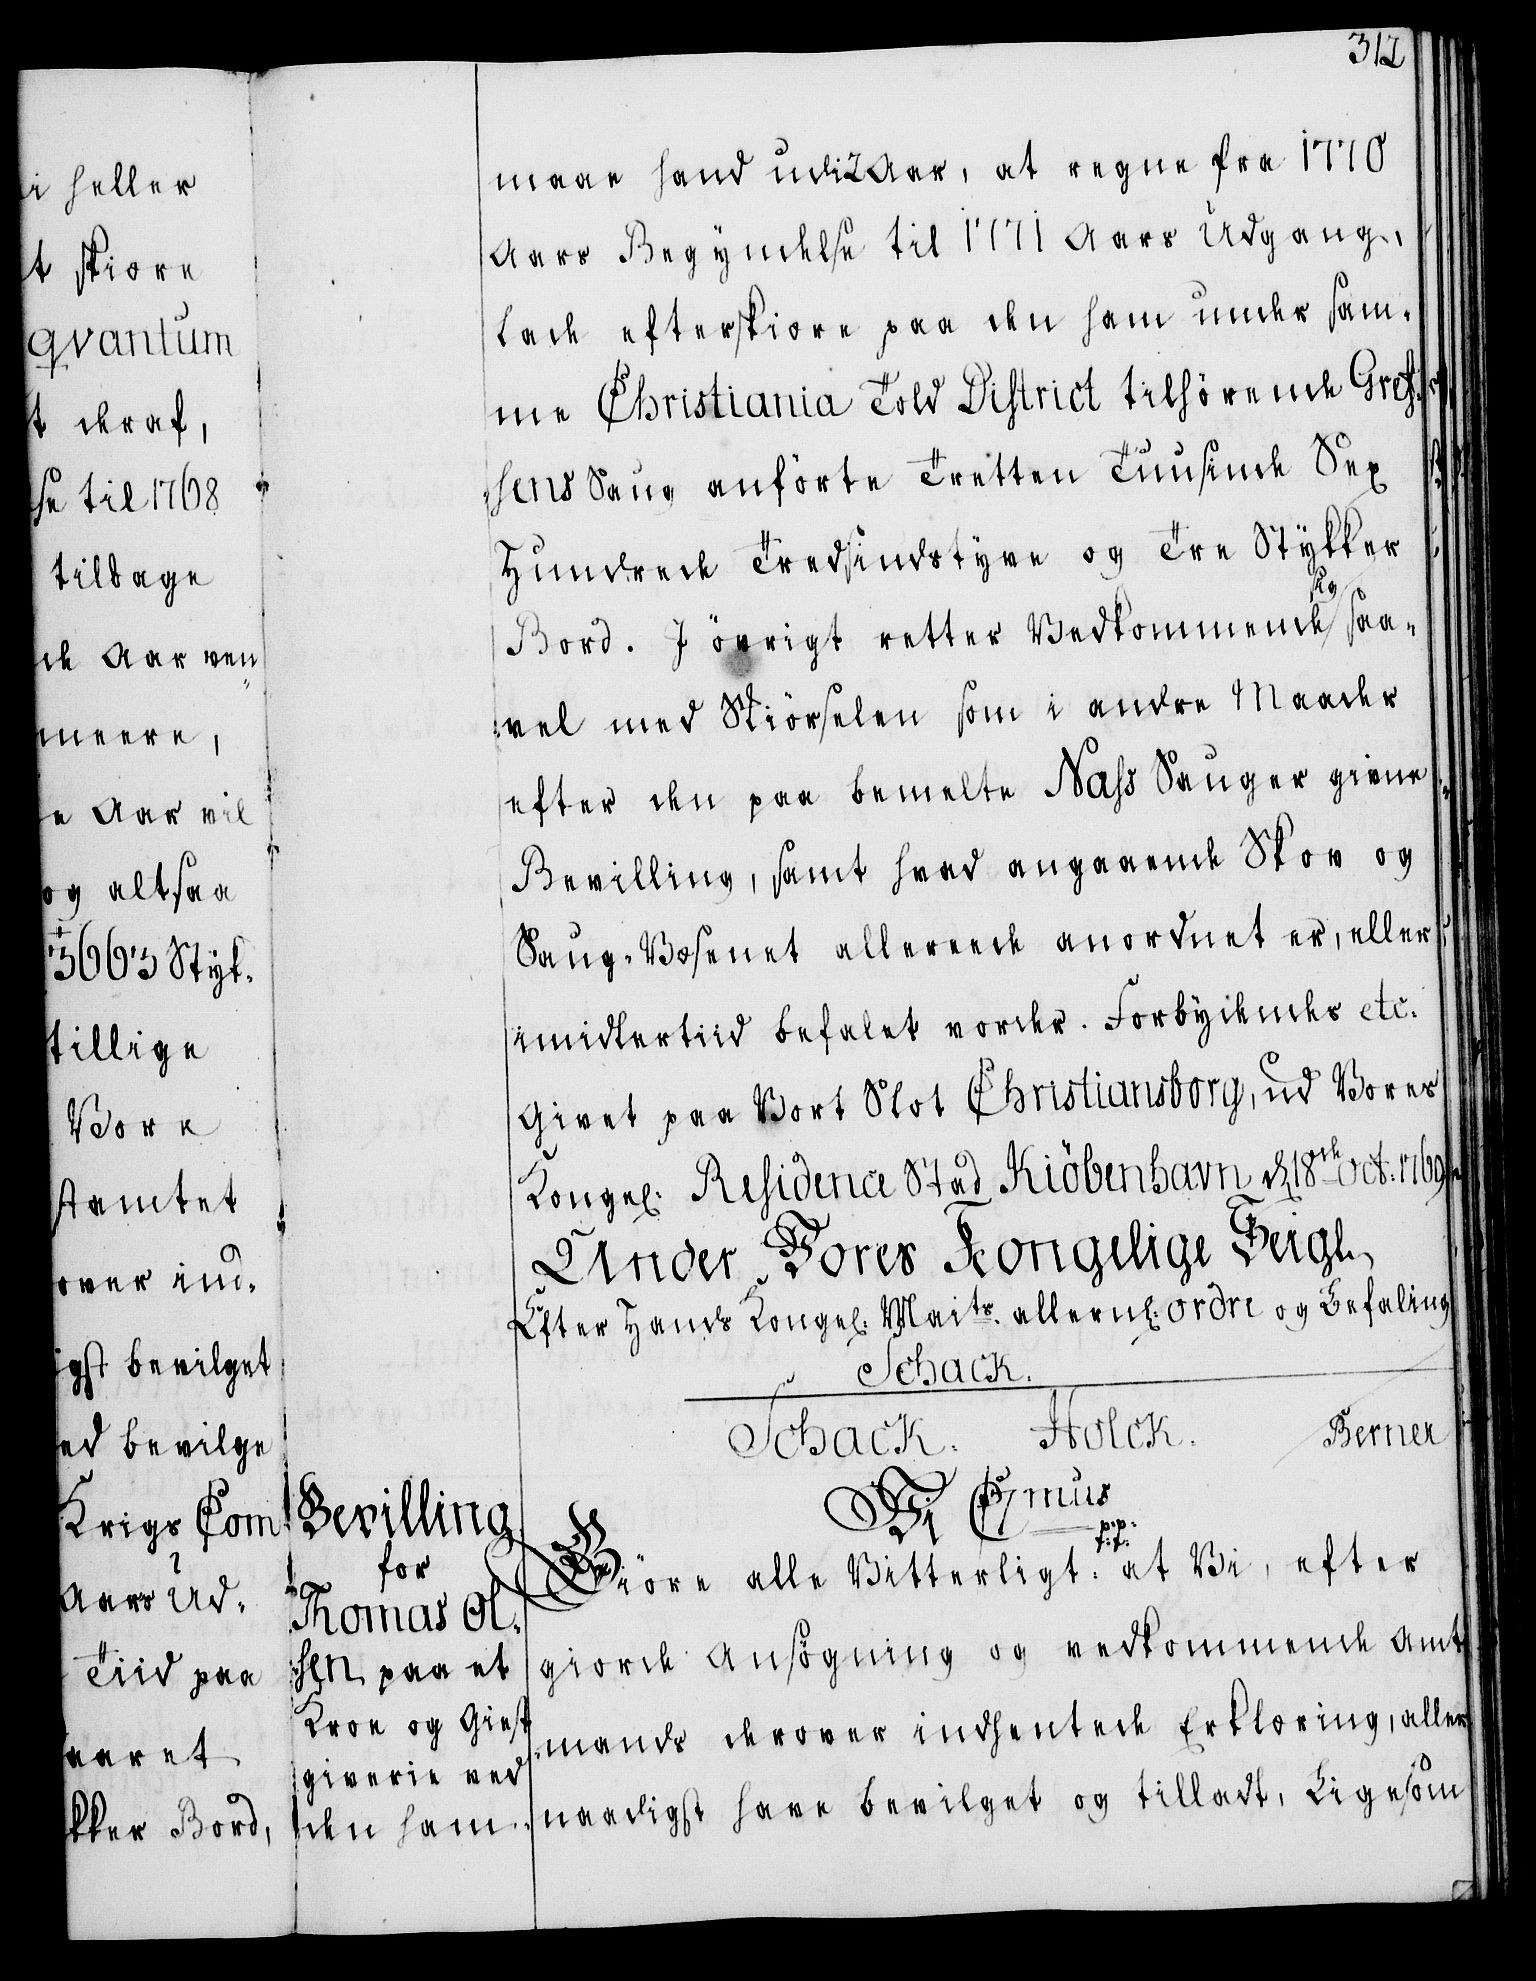 312
i heller
t skiære
qvantum
t deraf,
se til 1768
tilbage
de Aar ven
meere,
e Aar vil
og altsaa
3663 Styk-
tillige
Vore
stamtet
over ind-
igst bevilget
ed bevilge
Krigs Com
Aars Ud-
Tiid paa
varet
kker Bord,
maae hand udi 2 Aar, at regne fra 1770
Aars Begyndelse til 1771 Aars Udgang,
lade efterskiære paa den ham under sam-
me Christiania Told District tilhörende Gref-
sens Saug anförte Tretten Tuusinde Sex
Hundrede Tredsindstyve og Tre Stykker
Bord. I övrigt retter Vedkommende sig saa-
vel med Skiörselen som i andre Maader
efter den paa bemelte Nass Sauger givne
Bevilling, samt hvad angaaende Skov og
Saug-Væsenet allereede anordnet er, eller
imidlertiid befalet vorder. Forbydendes etc.
Givet paa Vort Slot Christiansborg, ud Vores
Kongel: Residence Stad Kiöbenhavn d. 18de Oct: 1769
Under Vores Kongelige Seigl.
Efter Hands Kongel: Maits. allern: ordre og Befaling
Schack.
Schack. Holck. Berner
Bevilling
for
Thomas Ol-
sen paa et
Kroe og Giest
giverie ved
den ham
Vi C7mus
p.p:
t:t:
Giöre alle Vitterligt: at Vi, efter
giorde Ansøgning og vedkommende Amt
mands derover indhentede Erklæring, aller
naadigst have bevilget og tilladt, Ligesom